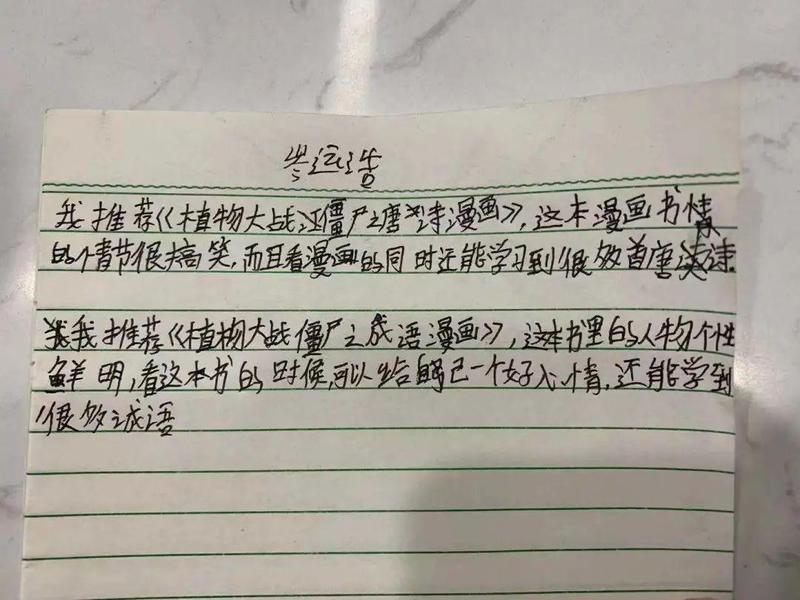 我推荐《植物大战僵尸之唐诗漫画》,这本漫画书
的情节很搞笑,而且看漫画的同时还能学习到很多首唐诗.
我推荐《植物大战僵尸之成语漫画》,这本书里的人物个性
鲜明,看这本书的时候,可以给自己一个好心情,还能学到
很多成语